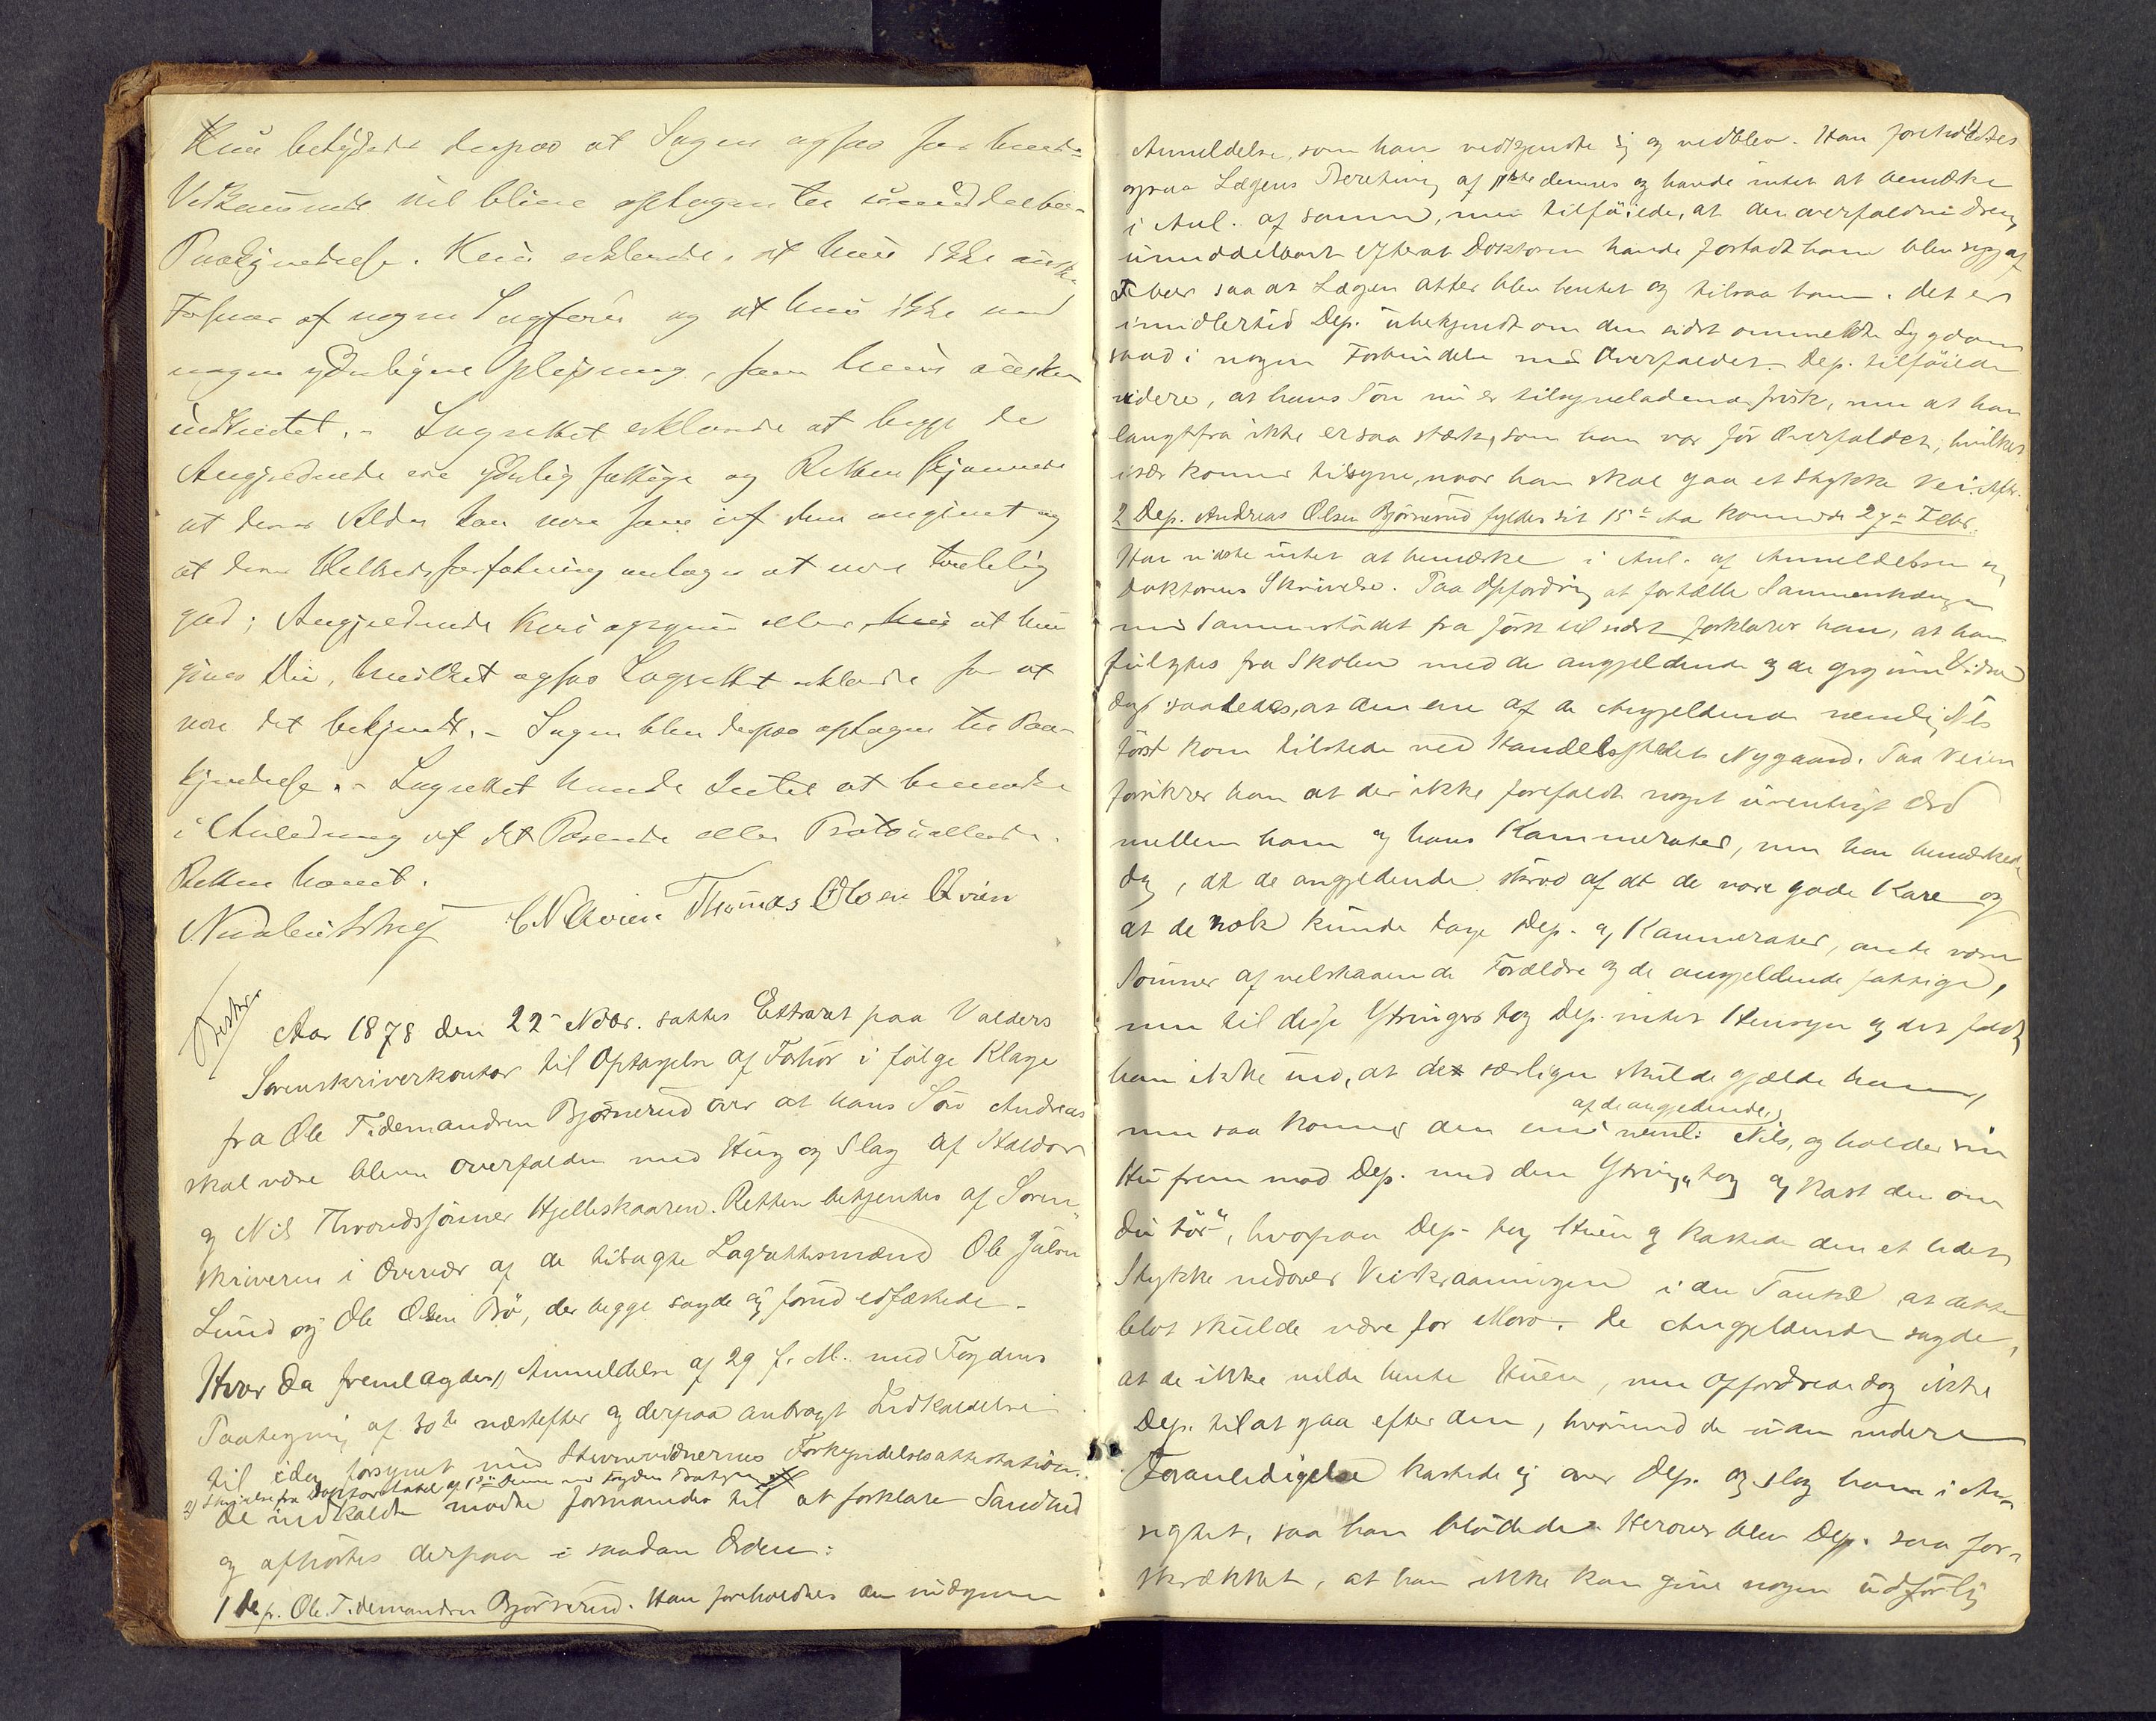 Hun betydedes derpaa at Sagen ogsaa for hendes
Vedkommende vil blive optagen til umiddelbar
Paakjendelse. Hun erklærede, at hun ikke ønsker
Forsvar af nogen Sagfører og at hun ikke ved
nogen yderligere Oplysning, som hun ønsker
indhentet. - Lagrettet erklærede at begge de
Angjeldende ere yderlig fattige og Retten skjønnede
at deres Alder kan være som af dem angivet og
at deres Helbredsforfatning antages at være temmelig
god; Angjeldende Kari opgiver eller hun at hun
giver Die, hvilket ogsaa Lagrettet erklærede for at
være det bekjendt. - Sagen blev derpaa optagen til Paa-
kjendelse. - Lagrettet havde Intet at bemærke
i Anledning af det Passerede eller Protokollerede.
Retten hævet.
C N Qvien Thomas Olsen Qvien
Aar 1878 den 22de Novbr. sattes Extraret paa Valders
Sorenskriverkontor til Optagelse af Forhør i følge Klage
fra Ole Tidemandsen Bjørnerud over at hans Søn Andreas
skal være bleven overfalden med Hug og Slag af Haldor
og Nils Throndssønner Hjelleskaaren. Retten betjentes af Soren-
skriveren i Overvær af de tilsagte Lagrettesmænd Ole Julsen
Lund og Ole Olsen Bø, der begge sagde sig forud edfæstede. -
Hvor da fremlagdes 1) Anmeldelse af 29 f. M. med Fogdens
Paategning af 30te næstefter og derpaa anbragt Indkaldelse
til idag forsynet med Stevnevidnernes Forkyndelsesattestation.
2) Skrivelse fra Doktor af 1ste denne med Fogdens Paategn.
De indkaldte mødte formanedes til at forklare Sandhed
og afhørtes derpaa i saadan Orden:
1 Dep. Ole Tidemandsen Bjørnerud. Han foreholdtes den indgivne
Anmeldelse, som han vedkjendte sig og vedblev. Han foreholdtes
ogsaa Lægens Beretning af 1ste dennes og havde intet at bemærke
i Anl. af samme, men tilføiede, at den overfaldne Dreng
umiddelbart efterat Doktoren havde forladt ham blev syg af
Feber saa at Lægen atter blev hentet og tilsaa ham. Det er
imidlertid Dep. ubekjendt om den sidst ommeldte Sygdom
staad i nogen Forbindelse med Overfaldet. Dep. tilføiede
videre, at hans Søn nu er tilsyneladende frisk, men at han
langtfra ikke er saa stærk, som han var før Overfaldet, hvilket
især kommer tilsyne, naar han skal gaa et Stykke Vei. Aftr.
2 Dep. Andreas Olsen Bjørnerud fylder sit 15de Aar kommende 27de Febr.
Han vidste intet at bemærke i Anl. af Anmeldelsen og
Doktorens Skrivelse. Paa Opfordring at fortælle Sammenhængen
med Sammenstødet fra først til sidst forklarer han, at han
fulgtes fra Skolen med de angjeldende og de øvrige Vidner
dog saaledes, at den ene af de Angjeldende nemlig Nils
først kom tilstede ved Handelsstedet Nygaard. Paa Veien
forsikrer han at der ikke forefaldt noget uventligt Ord
mellem ham og hans Kammerater, men han bemærkede
dog, at de angjeldende skrød af at de vare gode Kare og
at de nok kunde tage Dep. og Kammerater, andre være
Sønner af velstaaende Forældre og de angjeldende fattige,
men til disse Ytringer tog Dep. intet Hensyn og det faldt
ham ikke ind, at det særligen skulde gjælde ham,
men saa kommer den ene af de angjeldende, neml: Nils, og holder sin
Hu frem mod Dep. med den Ytring "tag og kast den om
du tør", hvorpaa Dep. tog Huen og kastede den et lidet
Stykke nedover Veiskraaningen i den Tanke at dette
blot skulde være for Moro. De Angjeldende sagde,
at de ikke vilde hente Huen, men opfordrede dog ikke
Dep. til at gaa efter den, hvorimod de uden videre
Foranledigelse kastede sig over Dep. og slog ham i An-
sigtet, saa han blødede. Herover blev Dep. saa for-
skrækket, at han ikke kan give nogen udførlig